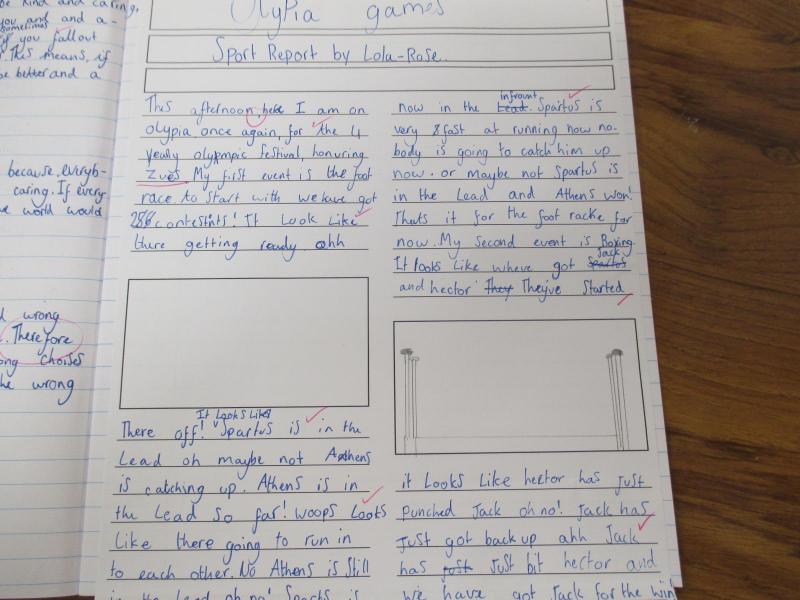 be kind and caring,
you and and a-
sometimes
if you fallout
. This means, if
be better and a
because, everyb-
caring. If every
e world would
d wrong
. Therefore
ong choises
he wrong
Olypia games
Sport Report by Lola-Rose.
This afternoon, here I am on
olypia once again, for the 4
yealy olypmpic festival, honuring
Zues. My first event is the foot
race. to start with we have got
286 contestints! It Look Like
there getting ready. ohh
It Looks Like
There off! Spartus is in the
Lead oh maybe not Athens
is catching up. Athens is in
the Lead so far! woops Looks
Like there going to run in
to each other. No Athens is Still
in the Lead oh no! Sparts is
infrount
now in the Lead. Spartus is
very fast at running now no-
body is going to catch him up
now. or maybe not Spartus is
in the Lead and Athens won!
Thats it for the foot racke for
now. My Second event is Boxing.
Jack
It looks Like where got Spartus
and hector They They've Started
it Looks Like hector has just
punched Jack oh no! Jack has
just got back up ahh Jack
has just Just bit hector and
We have got Jack for the win